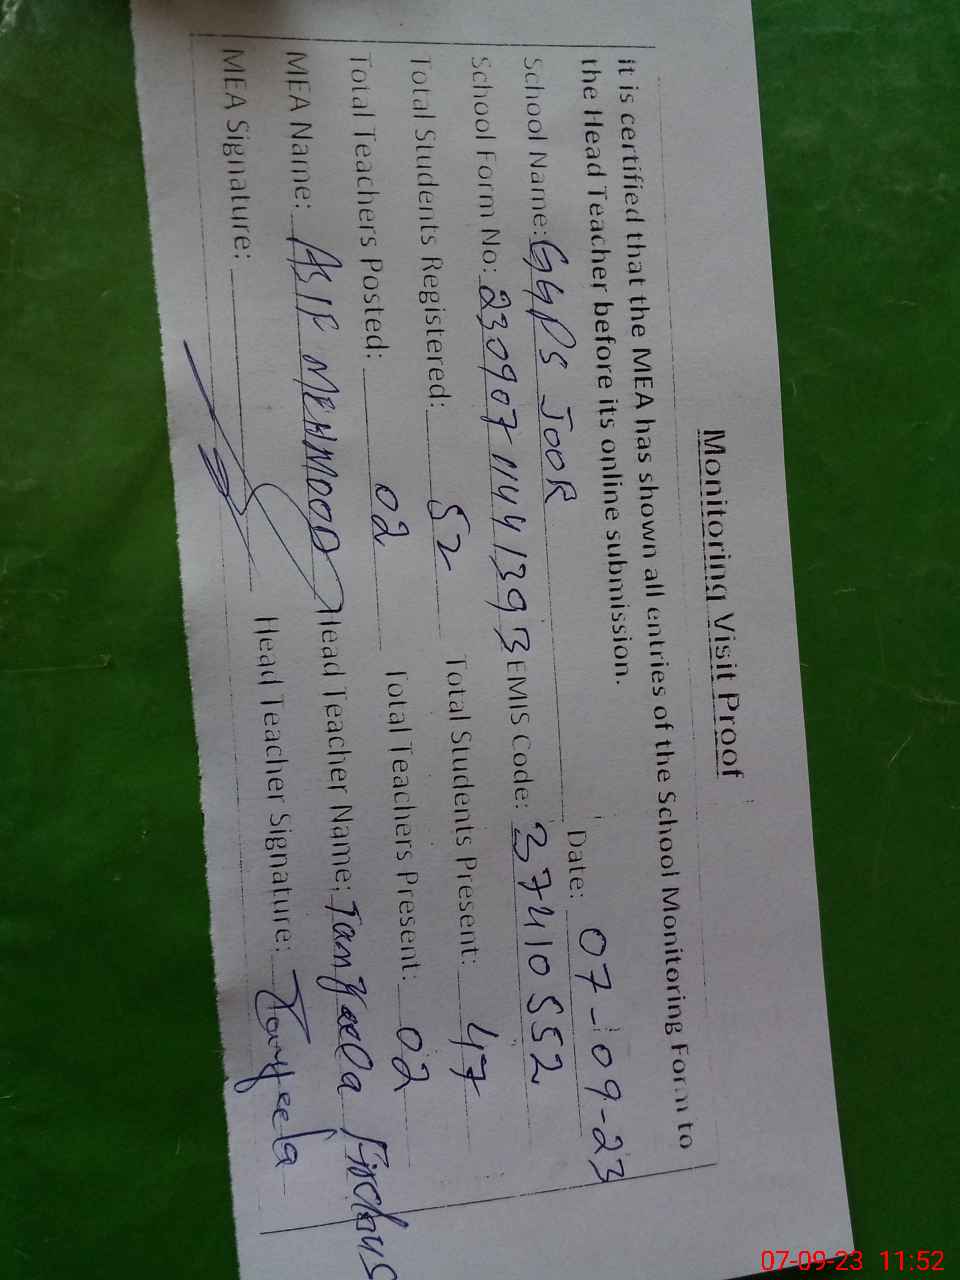 Monitoring Visit Proof
it is certified that the MEA has shown all entries of the School Monitoring Form to
the Head Teacher before its online submission.
Date: 07-09-23
School Name: GGPS JOOR
School Form No: 23090711441393 EMIS Code: 37410552
Total Students Registered: 52 Total Students Present: 47
Total Teachers Posted: 02 Total Teachers Present: 02
MEA Name: ASIF MEHMOOD Head Teacher Name: Tanzeela Firdous
MEA Signature: Head Teacher Signature: Tanzeela
07-09-23 11:52